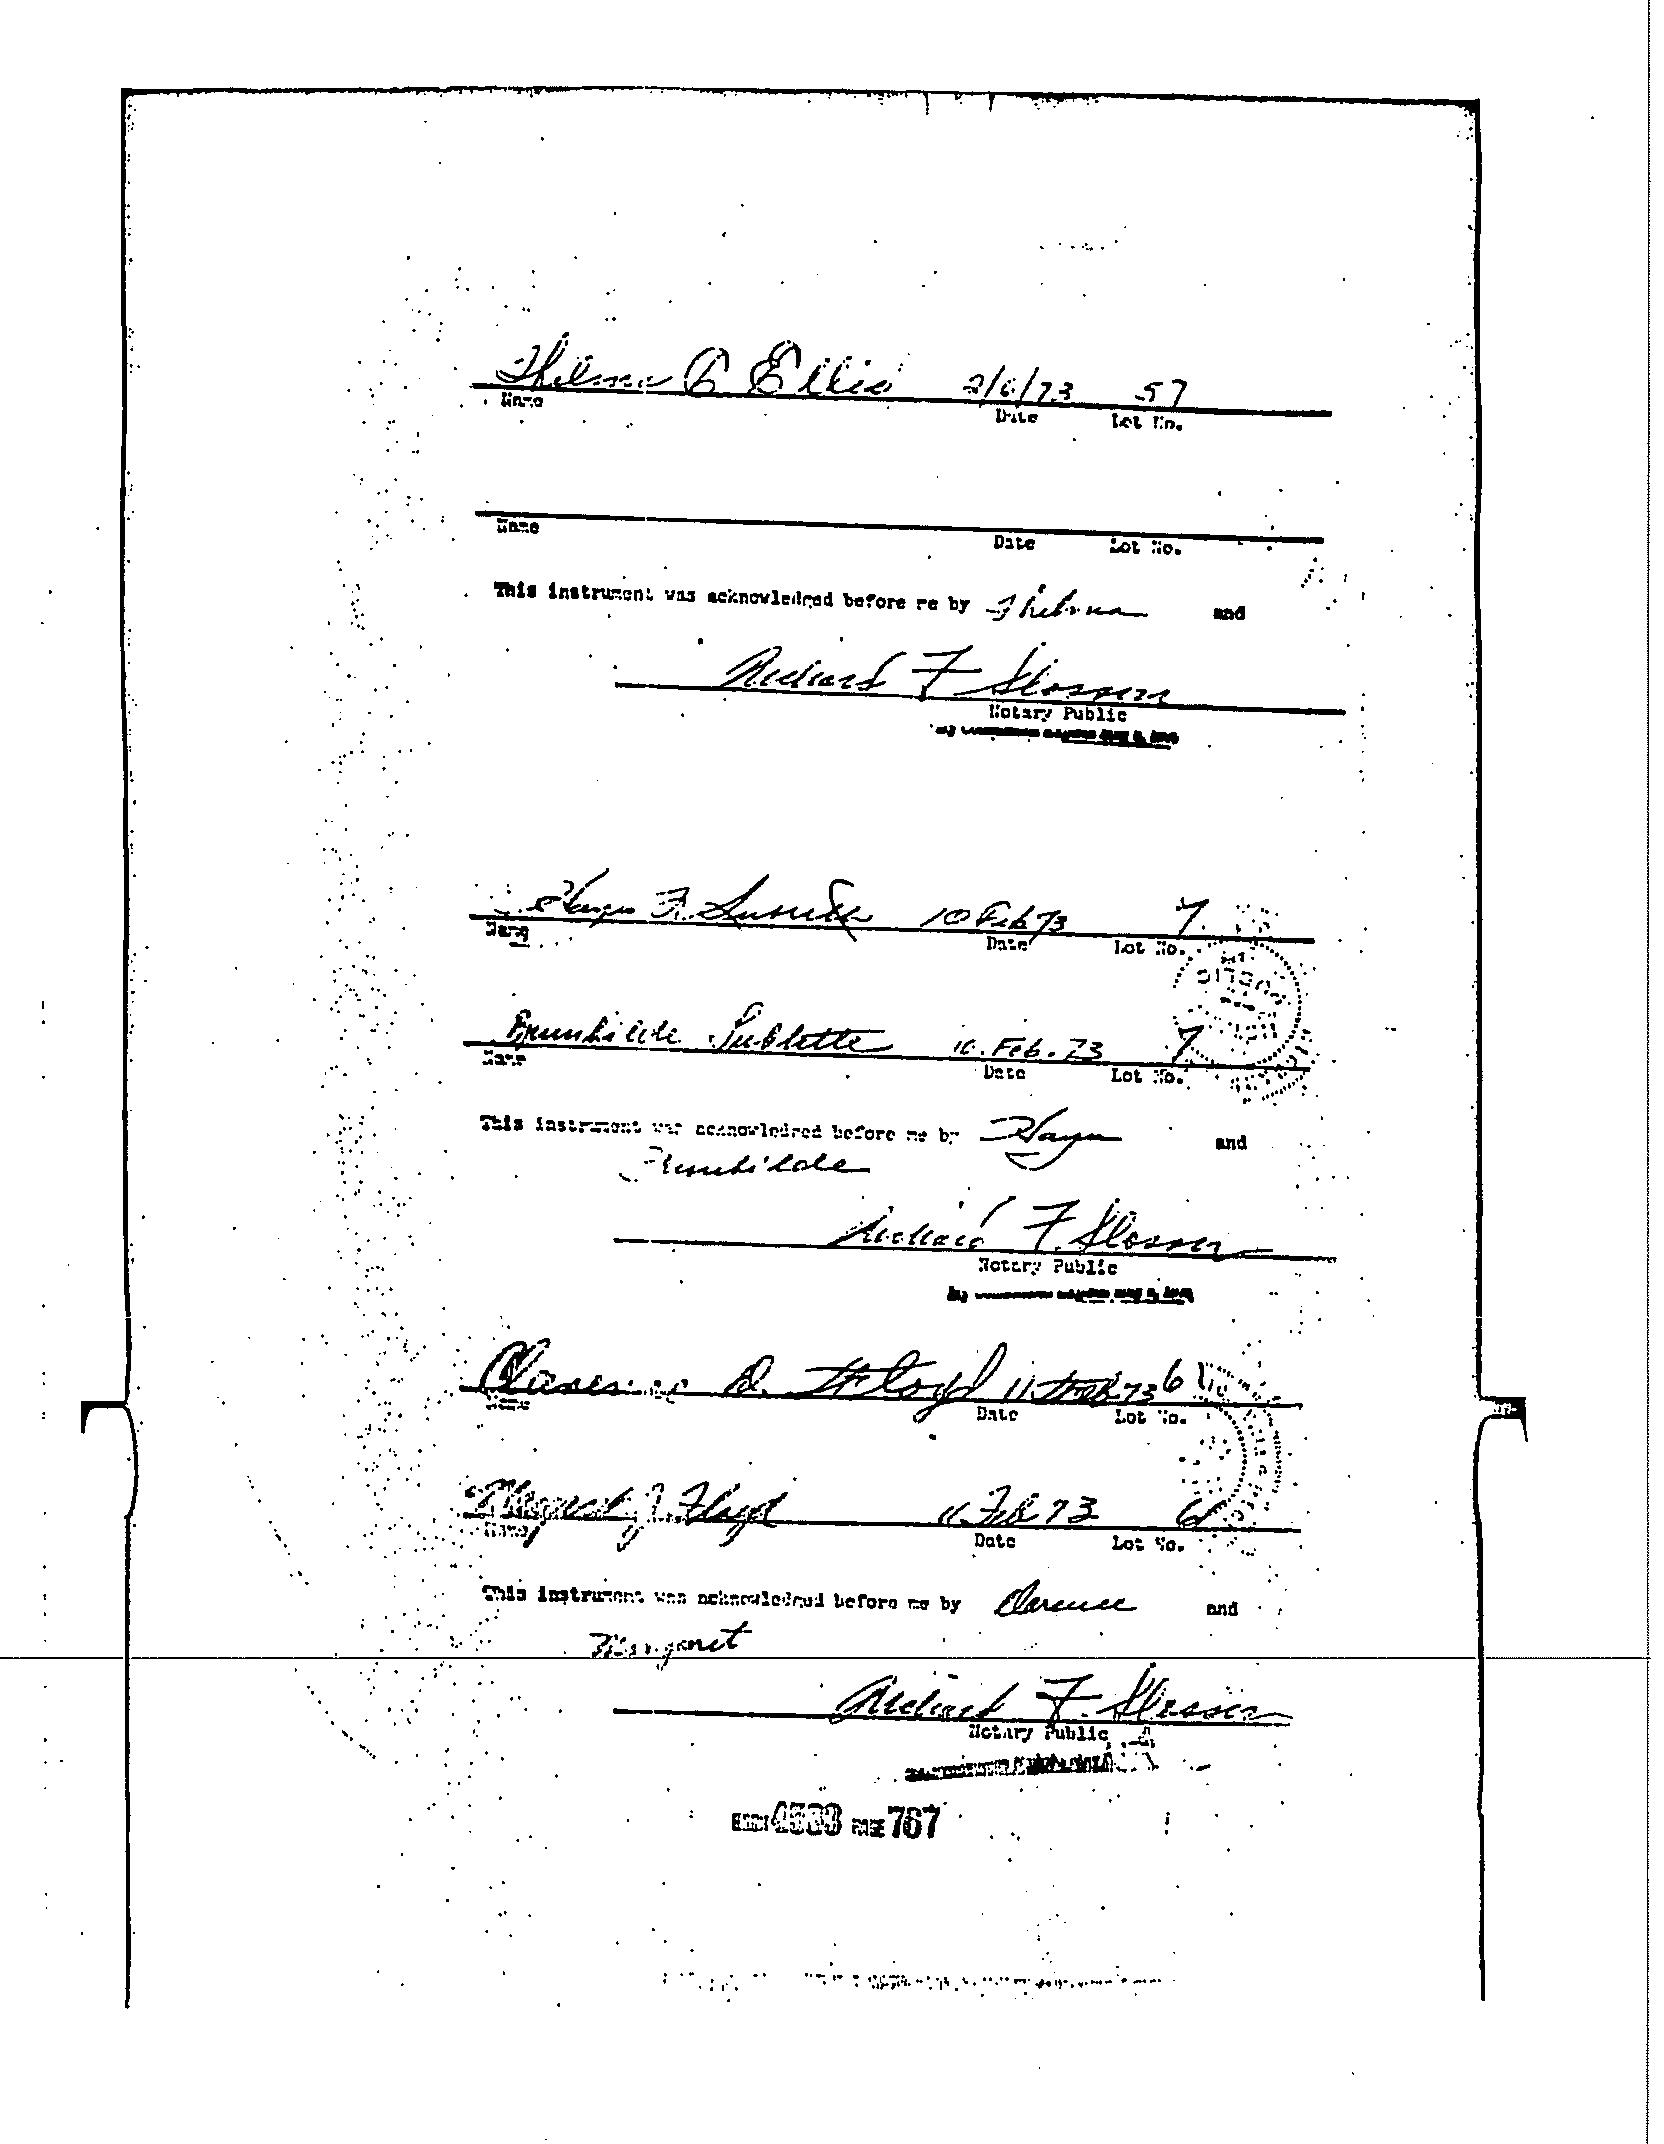 Thelma C Ellis 2/6/73 57
Name Date Lot No.
Name Date Lot No.
This instrument was acknowledged before me by Thelma and
Richard F Slosson
Notary Public
10 Feb 73 7
Name Date Lot No.
Brunhilde Sublette 10. Feb. 73 7
Name Date Lot No.
This instrument was acknowledged before me by and
Brunhilde
Richard F. Slosson
Notary Public
Clarence D. Floyd 11 Feb 73 6
Name Date Lot No.
Margaret J. Floyd 11 Feb 73 6
Name Date Lot No.
This instrument was acknowledged before me by Clarence and
Margaret
Richard F. Slosson
Notary Public
PAGE 767